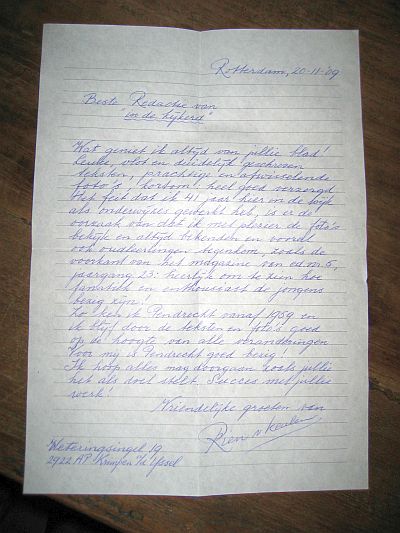 Rotterdam, 20-11-'09
Beste Redactie van
"in de kijkerd"
Wat geniet ik altijd van jullie blad!
Leuke, vlot en duidelijk geschreven
teksten, prachtige en afwisselende
foto's, kortom: heel goed verzorgd
Het feit dat ik 41 jaar hier in de wijk
als onderwijzer gewerkt heb, is er de
oorzaak van dat ik met plezier de foto's
bekijk en altijd bekenden en vooral
ook oudleerlingen tegenkom, zoals de
voorkant van het magazine van ed. nr. 5,
jaargang 23: heerlijk om te zien hoe
fanatiek en enthousiast de jongens
bezig zijn!
Zo ken ik Pendrecht vanaf 1959 en
ik blijf door de teksten en foto's goed
op de hoogte van alle veranderingen
Voor mij is Pendrecht goed bezig!
Ik hoop alles mag doorgaan zoals jullie
het als doel stelt. Succes met jullie
werk!
Vriendelijke groeten van
Rien v Keulen
Weteringsingel 19
2922 AP Krimpen a/d IJssel